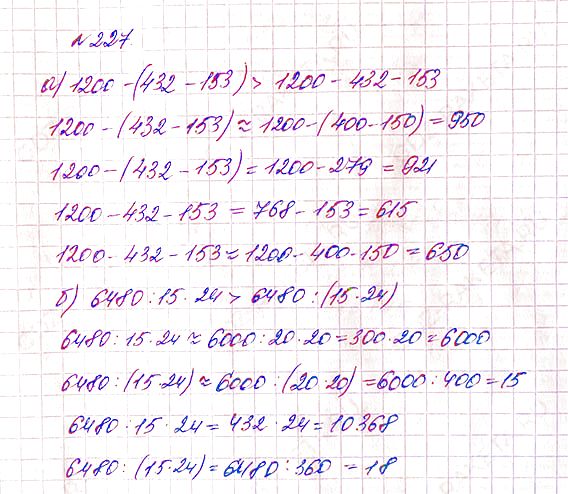 № 227.
а) 1200 - (432 - 153) > 1200 - 432 - 153
1200 - (432 - 153) ≈ 1200 - (400 - 150) = 950
1200 - (432 - 153) = 1200 - 279 = 921
1200 - 432 - 153 = 768 - 153 = 615
1200 - 432 - 153 ≈ 1200 - 400 - 150 = 650
б) 6480 : 15 · 24 > 6480 : (15 · 24)
6480 : 15 · 24 ≈ 6000 : 20 · 20 = 300 · 20 = 6000
6480 : (15 · 24) ≈ 6000 : (20 · 20) = 6000 : 400 = 15
6480 : 15 · 24 = 432 · 24 = 10368
6480 : (15 · 24) = 6480 : 360 = 18